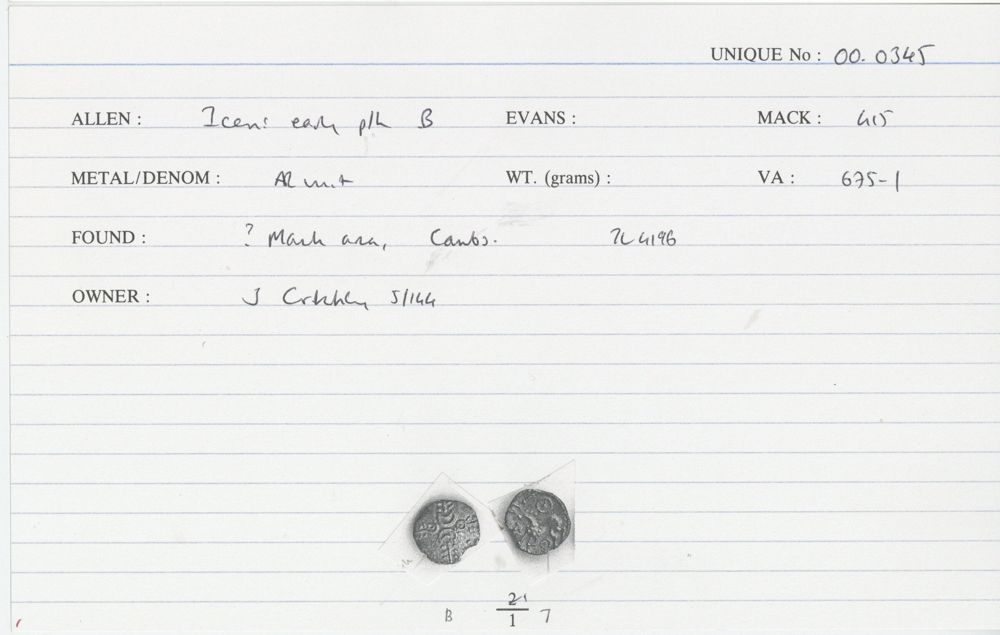 UNIQUE No : 00. 0345
ALLEN : Iceni early ptn B EVANS : MACK : 415
METAL/DENOM : AR unit WT. (grams) : VA : 675-1
FOUND : ? March area, Cambs. TL 4196
OWNER : J Critchley 5/144
B 21/1 7